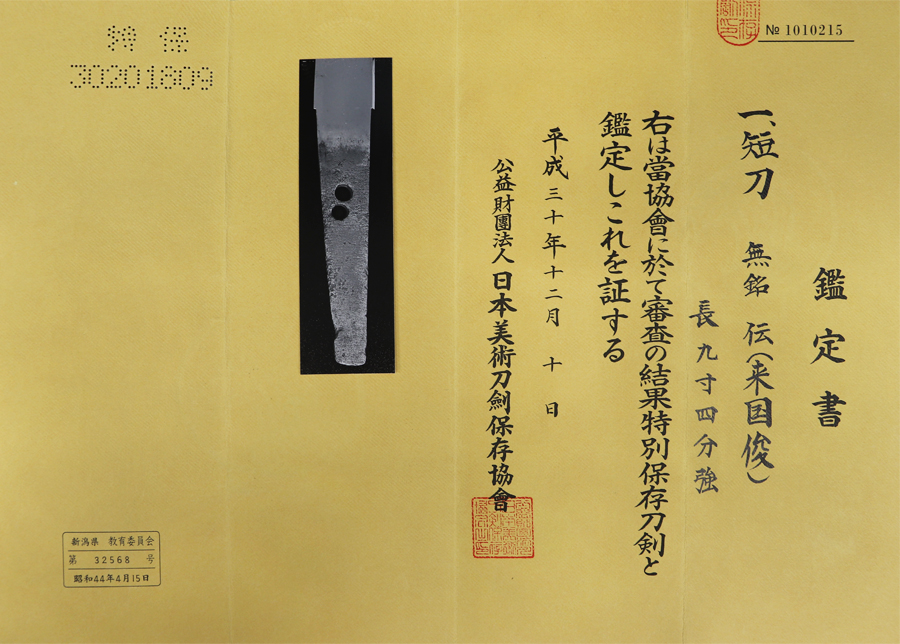 № 1010215
鑑定書
一、短刀 無銘 伝(来国俊)
長九寸四分強
右は當協會に於て審査の結果特別保存刀剣と
鑑定しこれを証する
平成三十年十二月 十 日
公益財團法人 日本美術刀劍保存協會
特 保
30201809
新潟県 教育委員会
第 32568 号
昭和44年4月15日